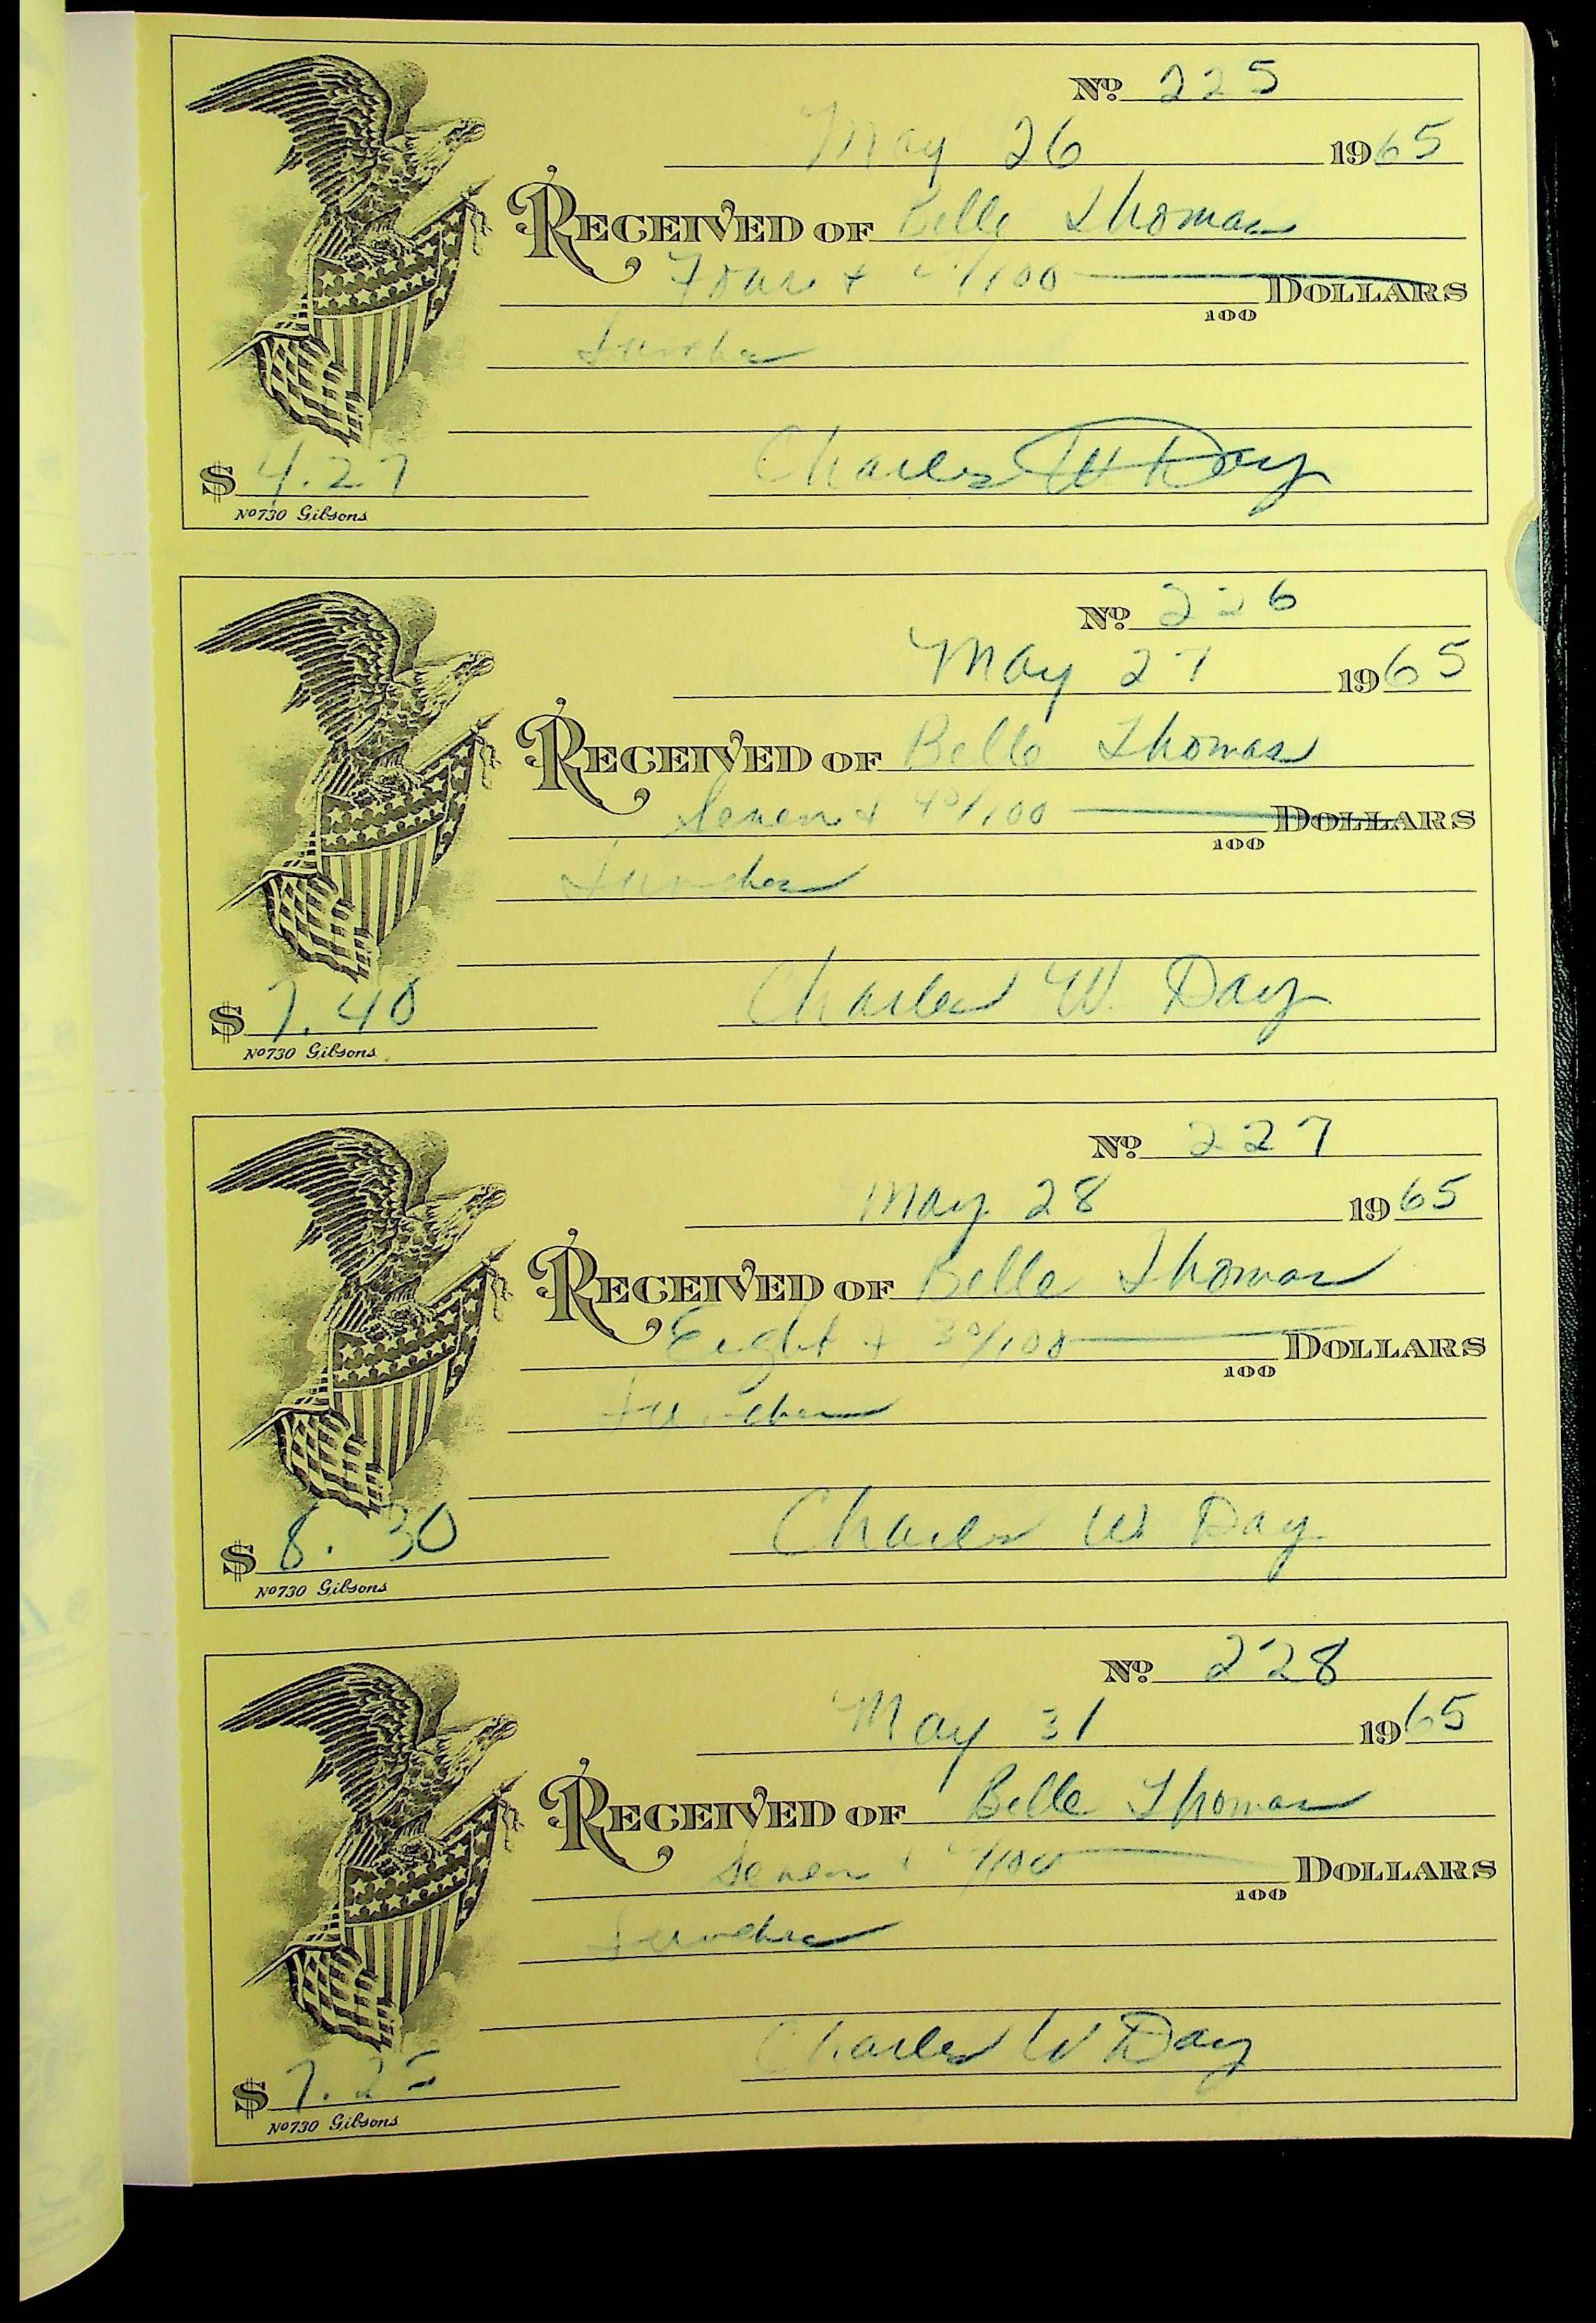 No. 225
May 26 1965
RECEIVED OF Belle Thomas
Four + /100 DOLLARS
100
Lunches
Charles W Day
$ 4.27
No 730 Gibsons
No. 226
May 27 1965
RECEIVED OF Belle Thomas
Seven + 40/100 DOLLARS
100
Lunches
Charles W. Day
$ 7.40
No 730 Gibsons
No. 227
May 28 1965
RECEIVED OF Belle Thomas
Eight + 30/100 DOLLARS
100
Lunches
Charles W Day
$ 8.30
No 730 Gibsons
No. 228
May 31 1965
RECEIVED OF Belle Thomas
Seven + /100 DOLLARS
100
Lunches
Charles W Day
$ 7.25
No 730 Gibsons